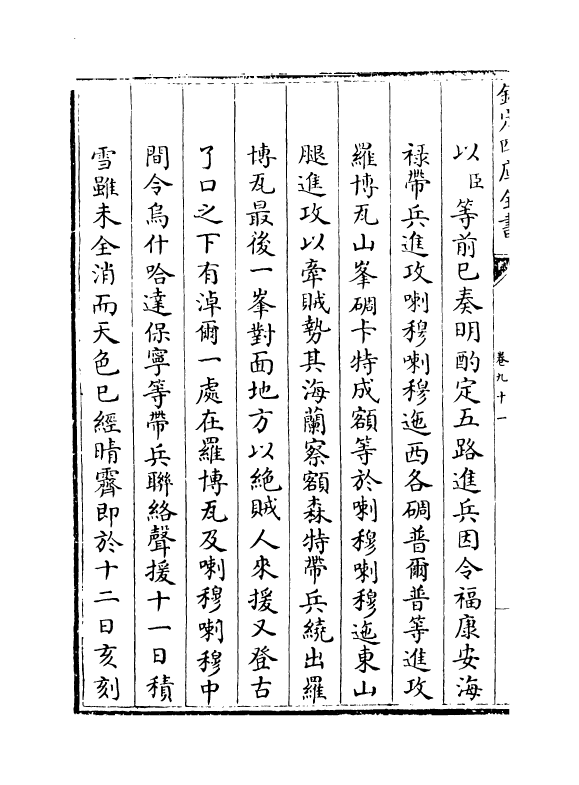 欽定四庫全書
卷九十一
以臣等前已奏明酌定五路進兵因令福康安海
祿帶兵進攻喇穆喇穆迤西各碉普爾普等進攻
羅博瓦山峯碉卡特成額等於喇穆喇穆迤東山
腿進攻以牽賊勢其海蘭察額森特帶兵繞出羅
博瓦最後一峯對面地方以絶賊人來援又登古
了口之下有淖爾一處在羅博瓦及喇穆喇穆中
間令烏什哈達保寧等帶兵聯絡聲援十一日積
雪雖未全消而天色已經晴霽即於十二日亥刻